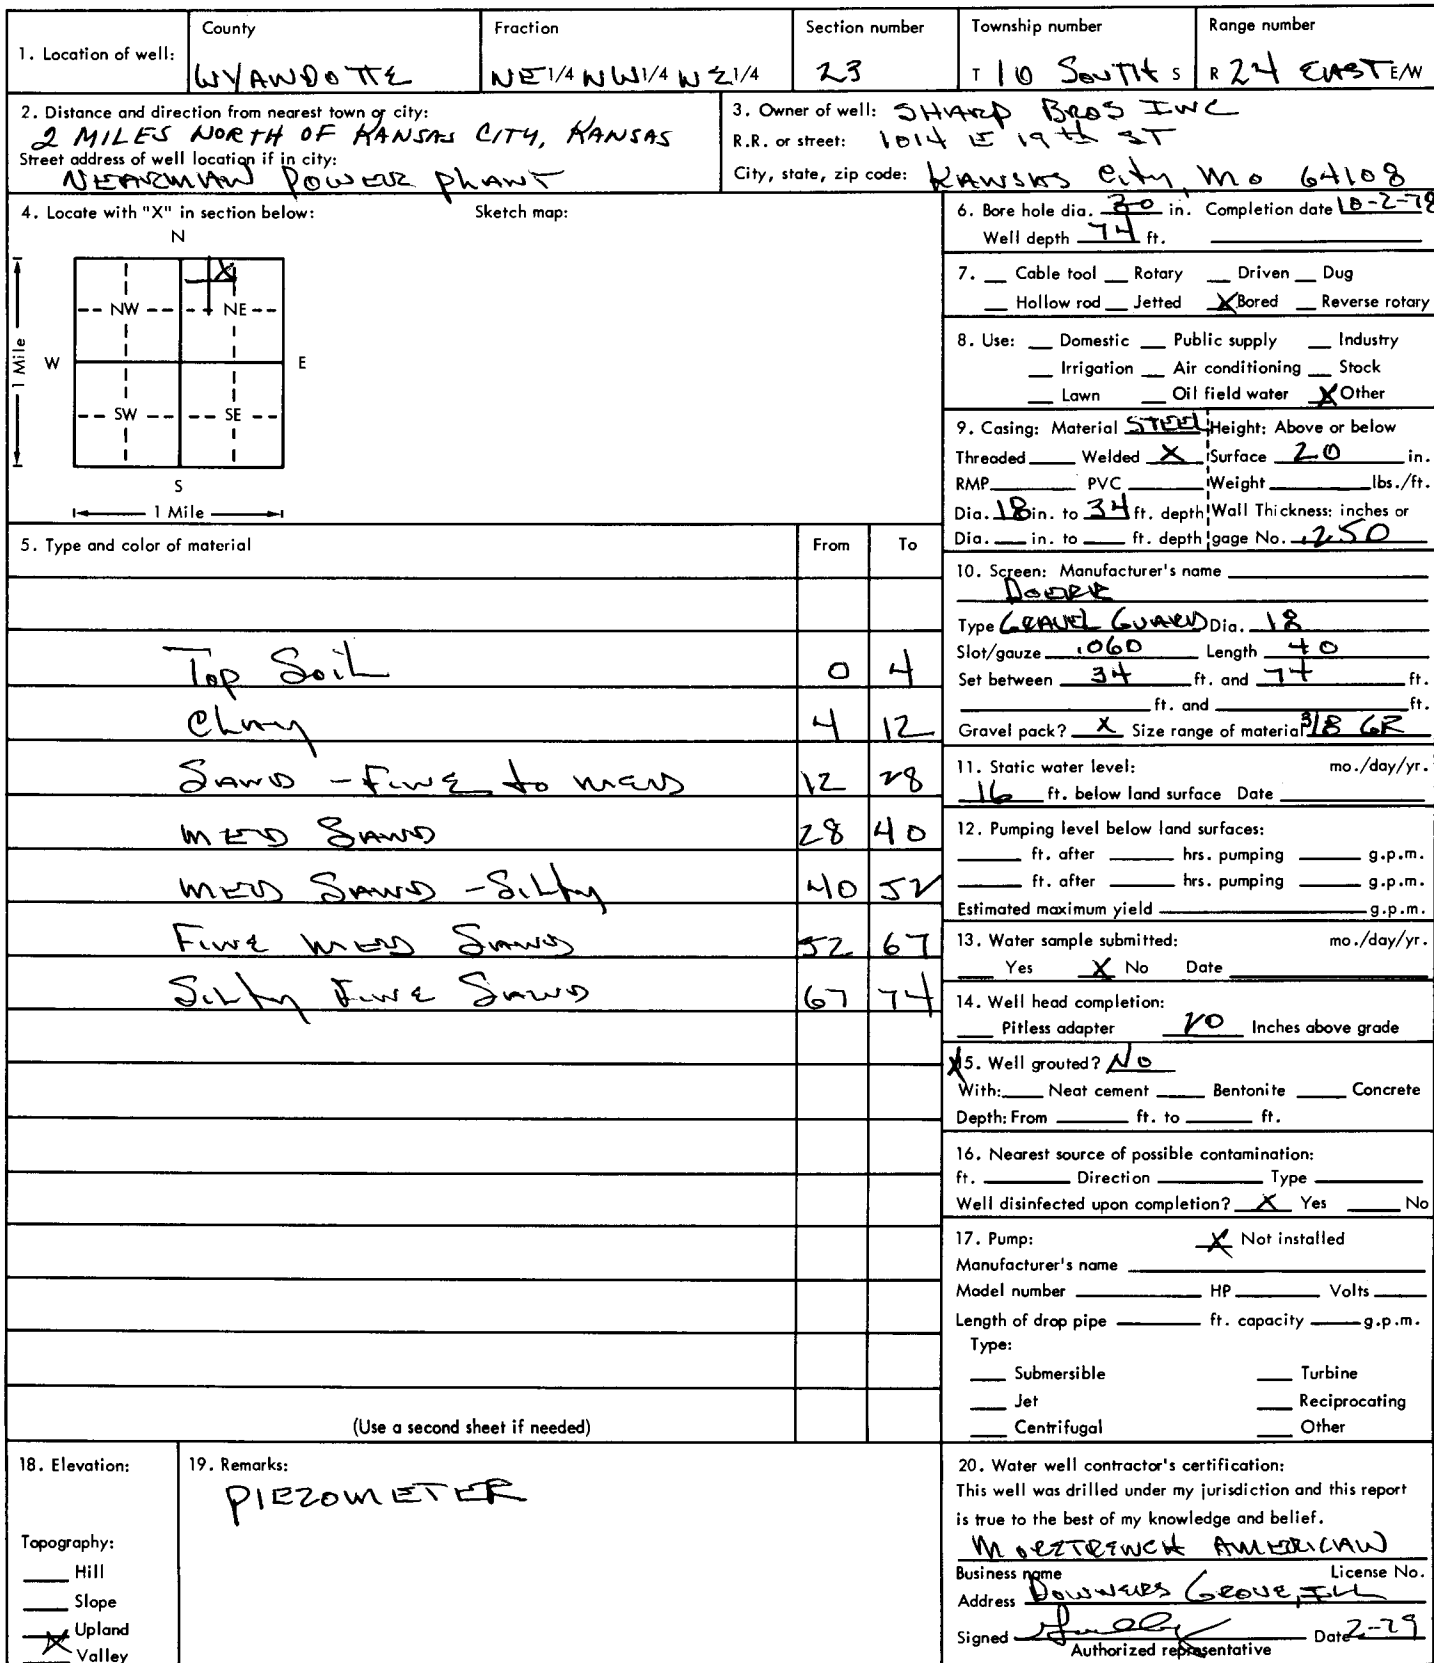 1. Location of well:
County
WYANDOTTE
Fraction
NE 1/4 NW 1/4 NE 1/4
Section number
23
Township number
T 10 SOUTH S
Range number
R 24 EAST E/W
2. Distance and direction from nearest town or city:
2 MILES NORTH OF KANSAS CITY, KANSAS
Street address of well location if in city:
NEARMAN POWER PLANT
3. Owner of well: SHARP BROS INC
R.R. or street: 1014 E 19th ST
City, state, zip code: KANSAS City, Mo 64108
4. Locate with "X" in section below:
Sketch map:
N
X
NW NE
W E
1 Mile
SW SE
S
1 Mile
5. Type and color of material From To
Top Soil 0 4
Clay 4 12
SAND - FINE to MED 12 28
MED SAND 28 40
MED SAND - Silty 40 52
FINE MED SAND 52 67
Silty FINE SAND 67 74
(Use a second sheet if needed)
6. Bore hole dia. 30 in. Completion date 10-2-78
Well depth 74 ft.
7. Cable tool Rotary Driven Dug
Hollow rod Jetted X Bored Reverse rotary
8. Use: Domestic Public supply Industry
Irrigation Air conditioning Stock
Lawn Oil field water X Other
9. Casing: Material STEEL Height: Above or below
Threaded Welded X Surface 20 in.
RMP PVC Weight lbs./ft.
Dia. 18 in. to 34 ft. depth Wall Thickness: inches or
Dia. in. to ft. depth gage No. .250
10. Screen: Manufacturer's name
DOERR
Type GRAVEL GUARD Dia. 18
Slot/gauze .060 Length 40
Set between 34 ft. and 74 ft.
ft. and ft.
Gravel pack? X Size range of material 3/8 GR
11. Static water level: mo./day/yr.
16 ft. below land surface Date
12. Pumping level below land surfaces:
ft. after hrs. pumping g.p.m.
ft. after hrs. pumping g.p.m.
Estimated maximum yield g.p.m.
13. Water sample submitted: mo./day/yr.
Yes X No Date
14. Well head completion:
Pitless adapter 20 Inches above grade
X 15. Well grouted? NO
With: Neat cement Bentonite Concrete
Depth: From ft. to ft.
16. Nearest source of possible contamination:
ft. Direction Type
Well disinfected upon completion? X Yes No
17. Pump: X Not installed
Manufacturer's name
Model number HP Volts
Length of drop pipe ft. capacity g.p.m.
Type:
Submersible Turbine
Jet Reciprocating
Centrifugal Other
18. Elevation:
Topography:
Hill
Slope
Upland
X Valley
19. Remarks:
PIEZOMETER
20. Water well contractor's certification:
This well was drilled under my jurisdiction and this report
is true to the best of my knowledge and belief.
MORETRENCH AMERICAN
Business name License No.
Address DOWNERS GROVE, ILL
Signed Date 2-79
Authorized representative